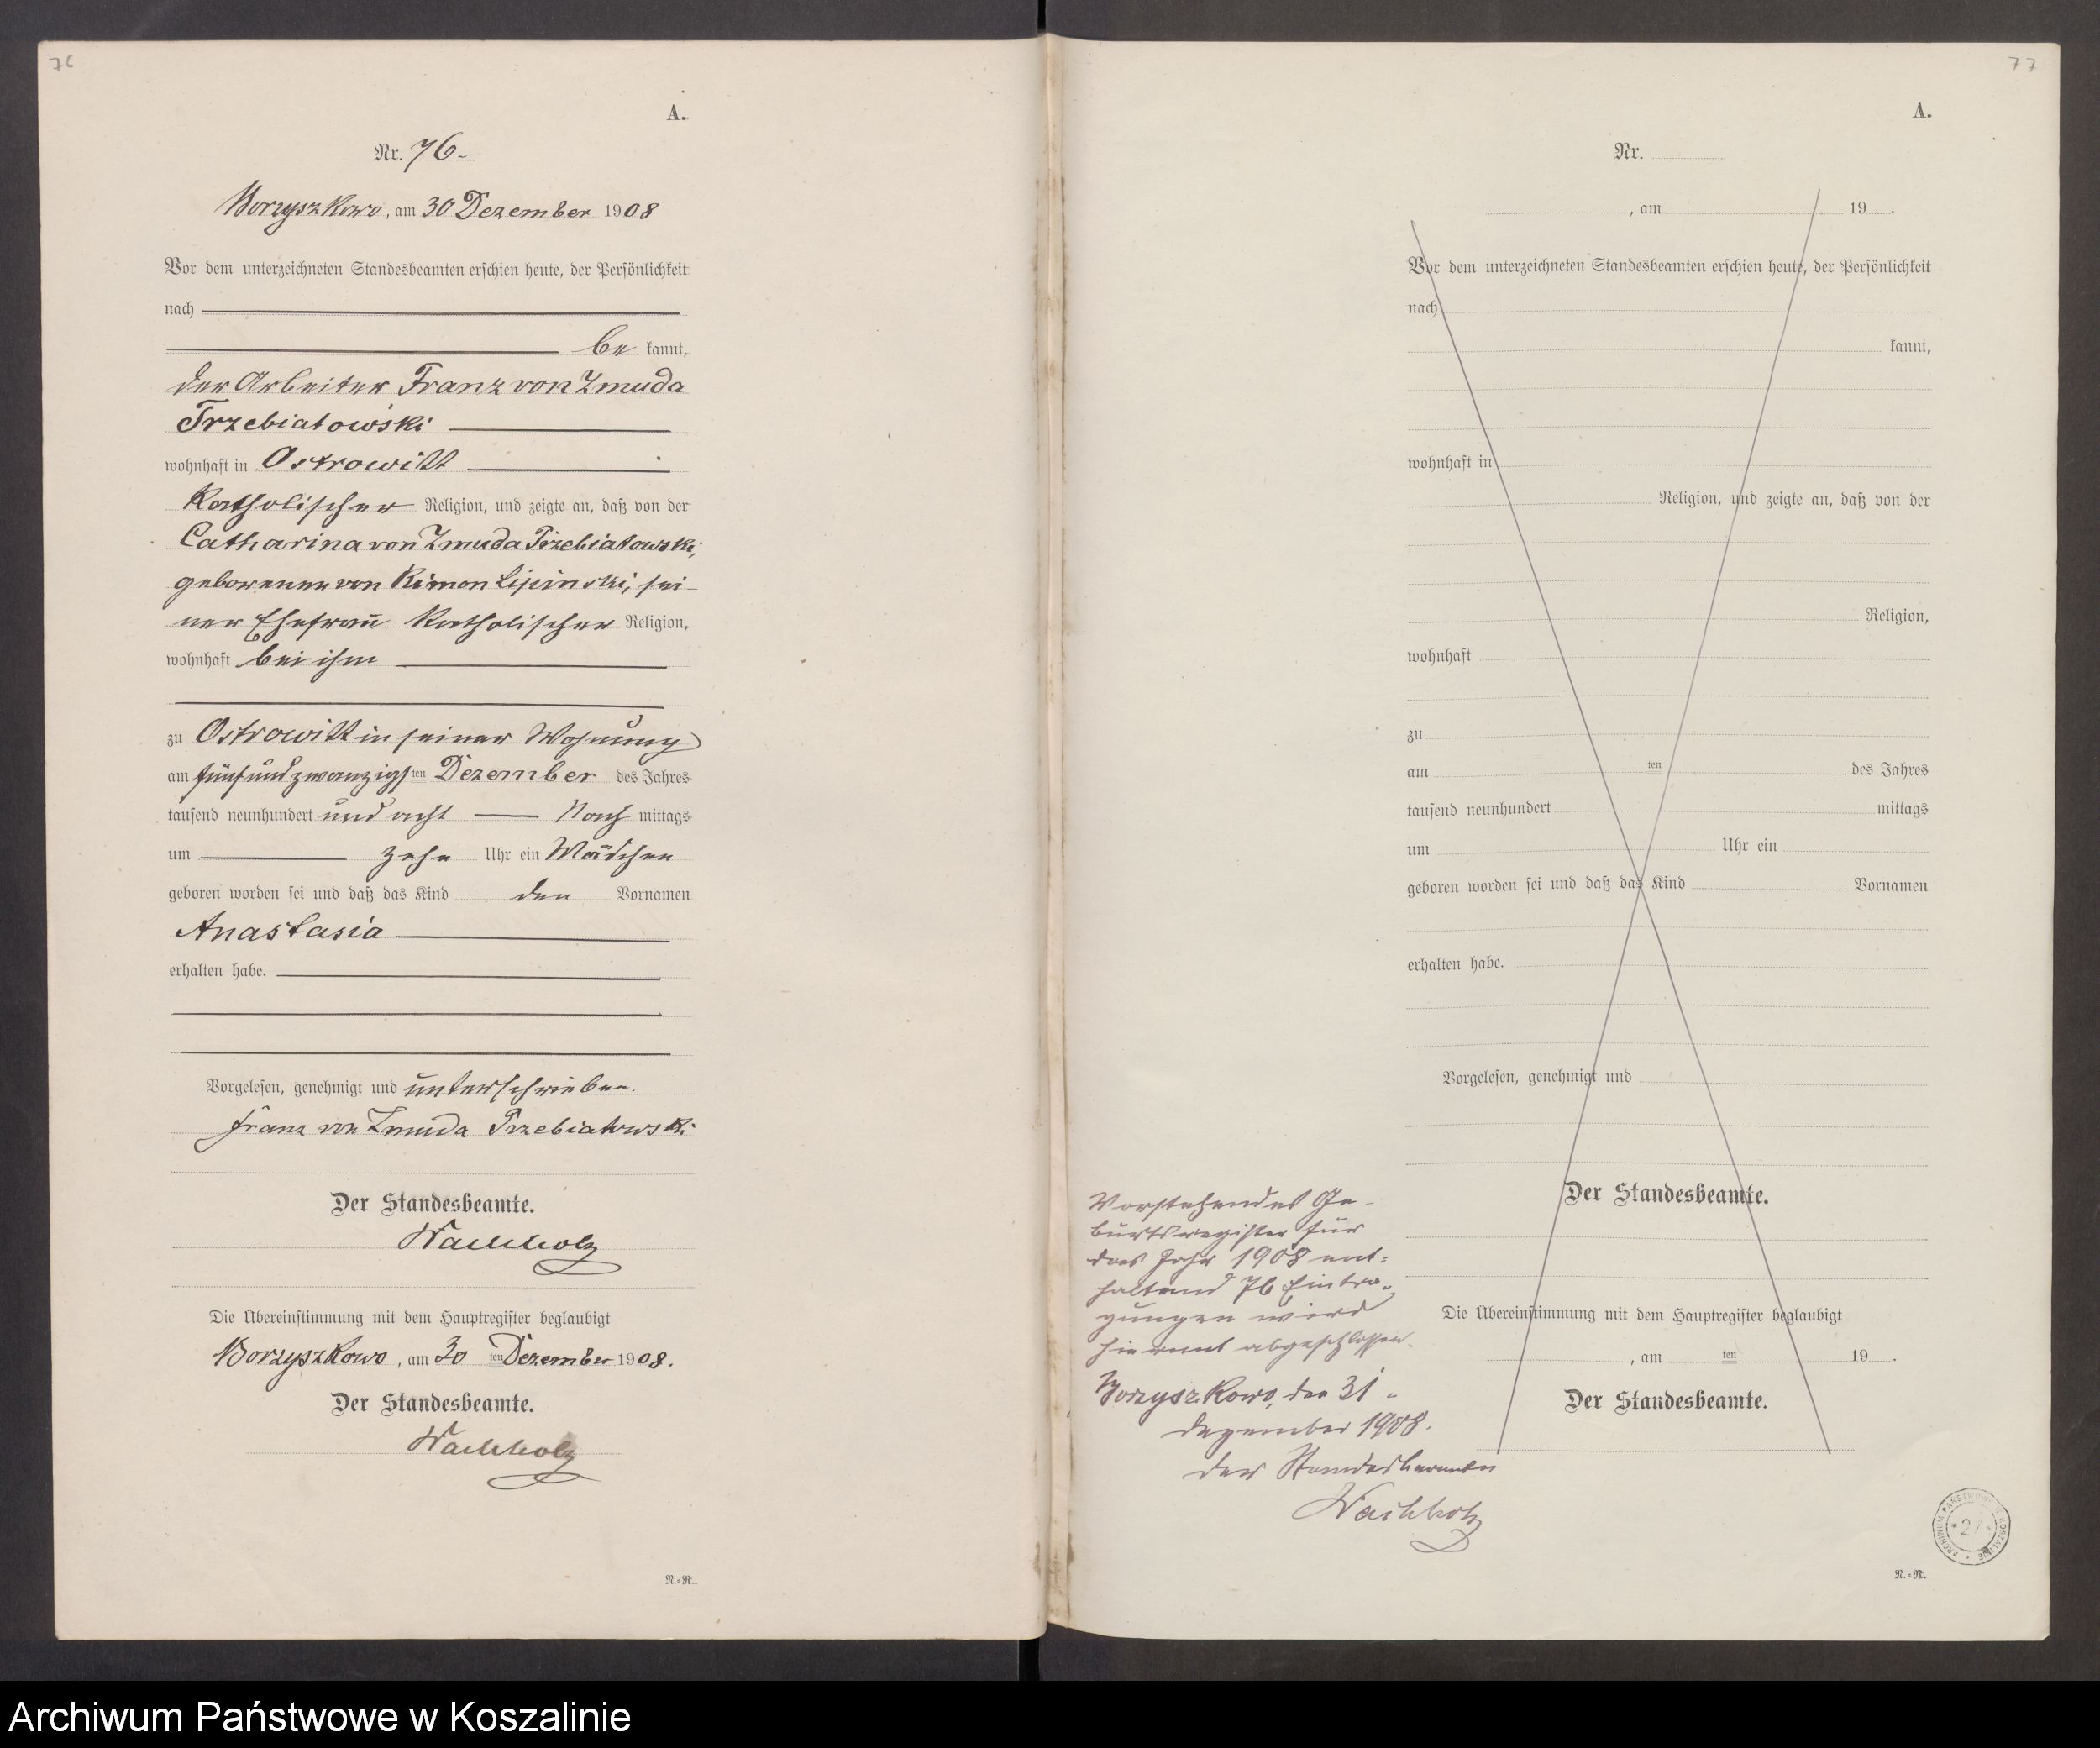 76
A.
Nr. 76.
Borzyszkowo, am 30 Dezember 1908
Vor dem unterzeichneten Standesbeamten erschien heute, der Persönlichkeit
nach
be kannt,
der Arbeiter Franz von Zmuda
Trzebiatowski
wohnhaft in Ostrowitt
katholischer Religion, und zeigte an, daß von der
Catharina von Zmuda Trzebiatowski,
geborenen von Kimon Lipinski, sei-
ner Ehefrau katholischer Religion,
wohnhaft bei ihm
zu Ostrowitt in seiner Wohnung
am fünfundzwanzigsten Dezember des Jahres
tausend neunhundert und acht Nach mittags
um zehn Uhr ein Mädchen
geboren worden sei und daß das Kind den Vornamen
Anastasia
erhalten habe.
Vorgelesen, genehmigt und unterschrieben.
Franz von Zmuda Trzebiatowski
Der Standesbeamte.
Wachholz
Die Übereinstimmung mit dem Hauptregister beglaubigt
Borzyszkowo, am 30 ten Dezember 1908.
Der Standesbeamte.
Wachholz
N.=R.
77
A.
Nr.
, am 19 .
Vor dem unterzeichneten Standesbeamten erschien heute, der Persönlichkeit
nach
kannt,
wohnhaft in
Religion, und zeigte an, daß von der
Religion,
wohnhaft
zu
am ten des Jahres
tausend neunhundert mittags
um Uhr ein
geboren worden sei und daß das Kind Vornamen
erhalten habe.
Vorgelesen, genehmigt und
Der Standesbeamte.
Die Übereinstimmung mit dem Hauptregister beglaubigt
, am ten 19 .
Der Standesbeamte.
Vorstehendes Ge-
burtsregister für
das Jahr 1908 ent-
haltend 76 Eintra-
gungen wird
hiermit abgeschlossen.
Borzyszkowo, den 31.
Dezember 1908.
Der Standesbeamte
Wachholz
ARCHIWUM PAŃSTWOWE W KOSZALINIE
27
N.=R.
Archiwum Państwowe w Koszalinie